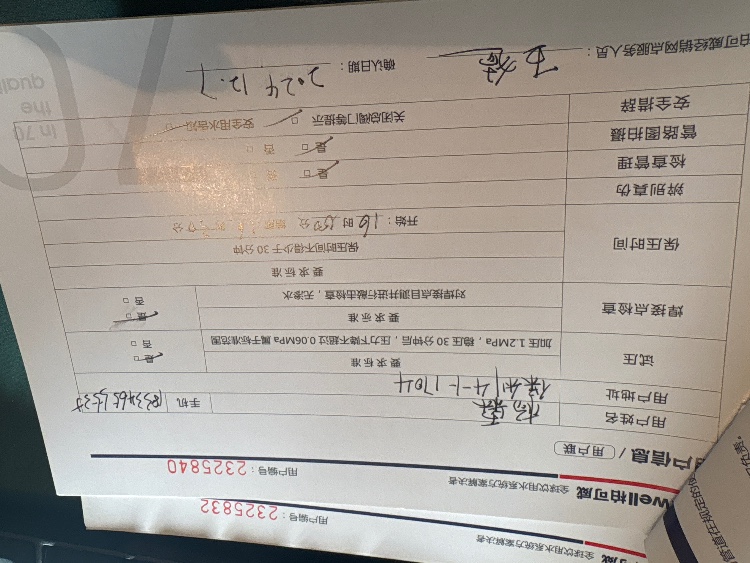 全球饮用水系统方案解决者
用户编号：2325832
well柏可威 全球饮用水系统方案解决者
用户编号：2325840
户信息 / 用户联
用户姓名
手机
用户地址 4-1-1704
试压
要求标准
加压1.2MPa，稳压30分钟后，压力下降不超过0.06MPa属于标准范围
是
否
焊接点检查
要求标准
对焊接点目测并进行敲击检查，无渗水
是
否
保压时间
要求标准
保压时间不得少于30分钟
开始：16时 分
辨别真伪
检查管理
是
否
管路图拍摄
是
否
安全措辞
关闭总阀门等提示
安全用水告知
柏可威经销网点服务人员：
确认日期：2024 12.7
In 70
the
quali